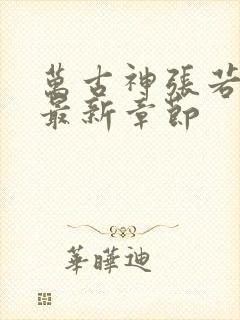 萬古神張若
最新章節
華曄迪